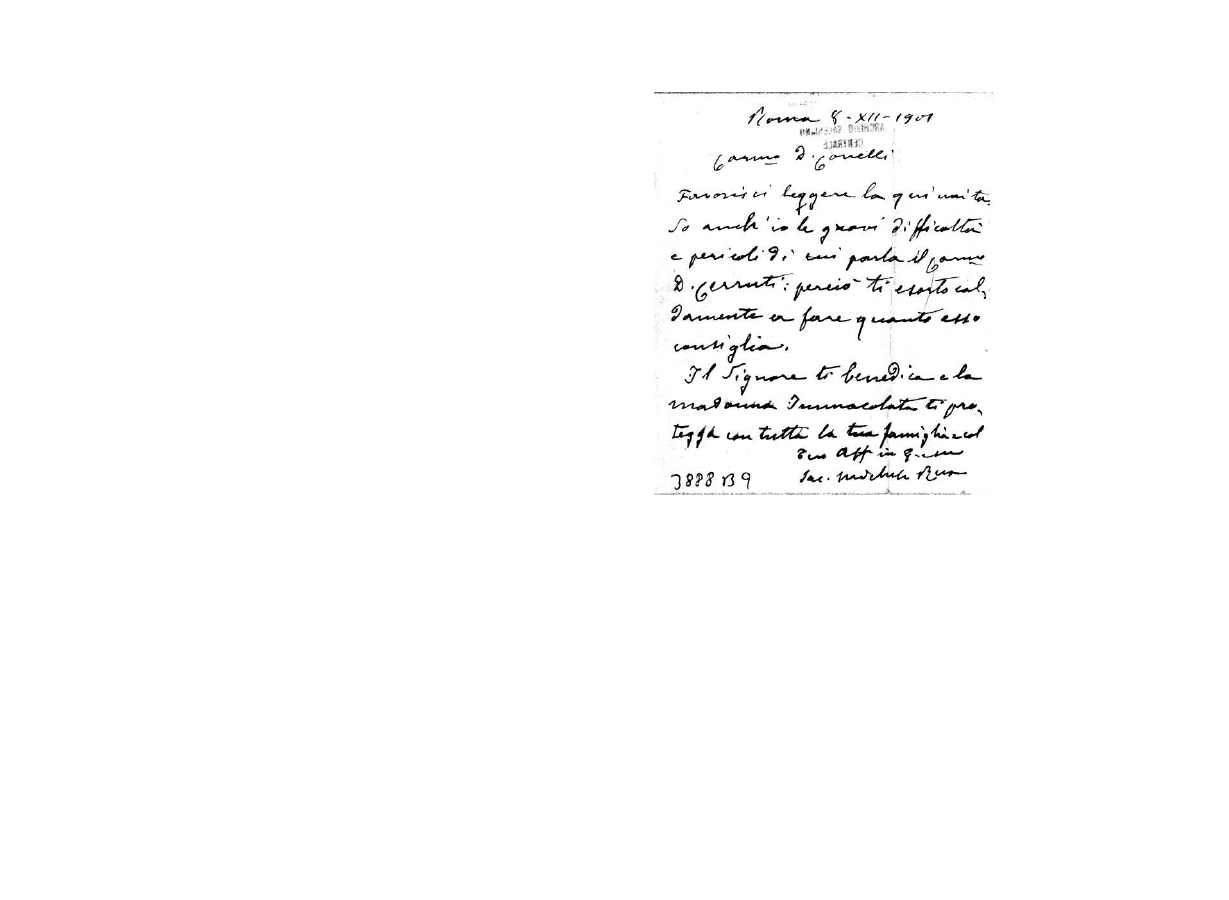 Roma 8-XII-1901
ARCHIVIO SALESIANO
CENTRALE
Carmo D. Conelli
Favorisci leggere la qui unita.
So anch'io le gravi difficoltà
e pericoli di cui parla il Carmo
D. Cerruti: perciò ti esorto cal,
damente a fare quanto esso
consiglia.
Il Signore ti benedica e la
Madonna Immacolata ti pro,
tegga con tutta la tua famiglia col
Tuo Aff in G.
Sac. Michele Rua
3888 B 9